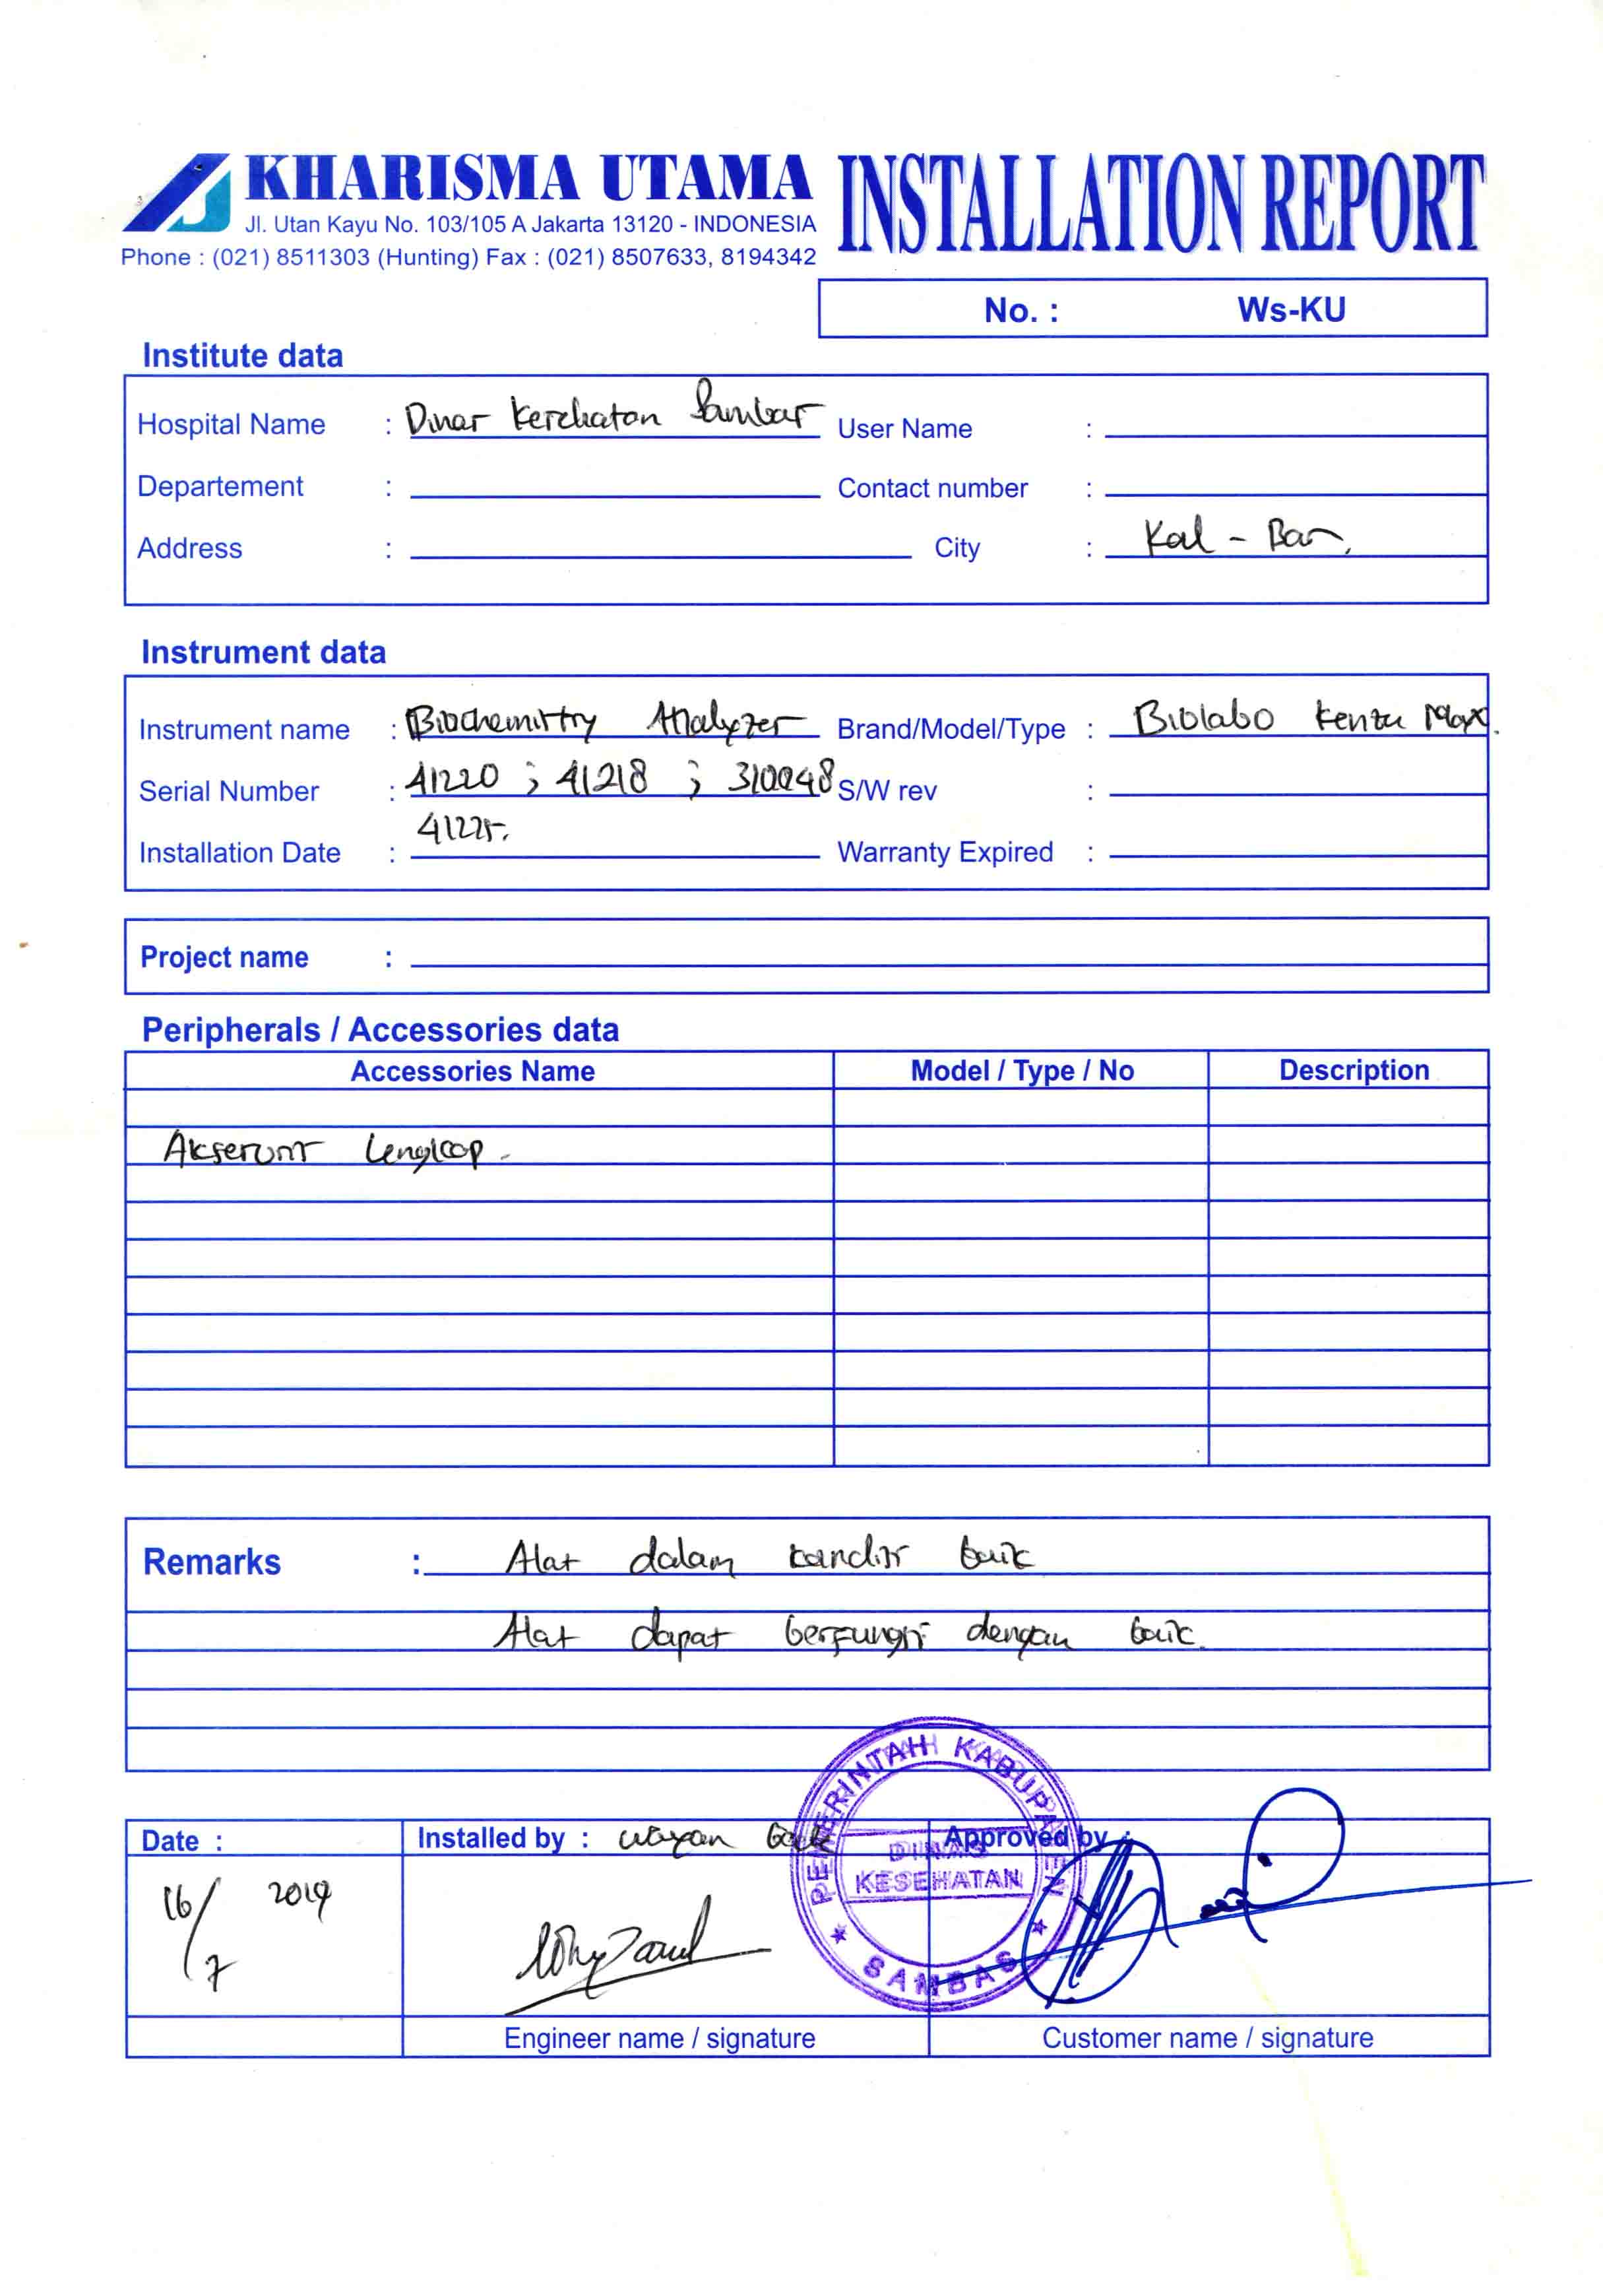 KHARISMA UTAMA
Jl. Utan Kayu No. 103/105 A Jakarta 13120 - INDONESIA
Phone : (021) 8511303 (Hunting) Fax : (021) 8507633, 8194342
INSTALLATION REPORT
No. : Ws-KU
Institute data
Hospital Name : Dinas Kesehatan Sambas User Name :
Departement : Contact number :
Address : City : Kal - Bar.
Instrument data
Instrument name : Biochemistry Analyzer Brand/Model/Type : Biolabo Kenza Max.
Serial Number : 41220 ; 41218 ; 310048 S/W rev :
41225.
Installation Date : Warranty Expired :
Project name :
Peripherals / Accessories data
Accessories Name Model / Type / No Description
Aksesoris lengkap.
Remarks : Alat dalam kondisi baik
Alat dapat berfungsi dengan baik.
Date : Installed by : Wayan Approved by :
16/7 2019
PEMERINTAH KABUPATEN
DINAS
KESEHATAN
SAMBAS
Engineer name / signature Customer name / signature